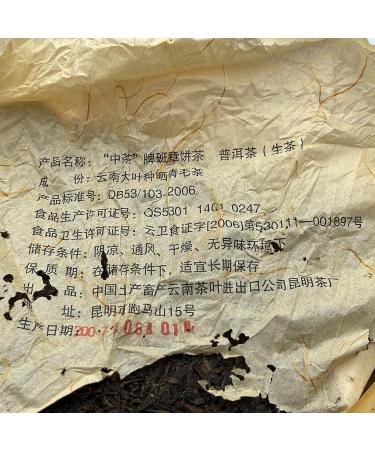 产品名称：“中茶”牌班章饼茶　普洱茶（生茶）
成　　份：云南大叶种晒青毛茶
产品标准号：DB53/103-2006
食品生产许可证号：QS5301 1401 0247
食品卫生许可证号：云卫食证字[2006]第530111-001897号
储存条件：阴凉、通风、干燥、无异味环境下
保 质 期：在储存条件下，适宜长期保存
出　　品：中国土产畜产云南茶叶进出口公司昆明茶厂
址：昆明市跑马山15号
生产日期：